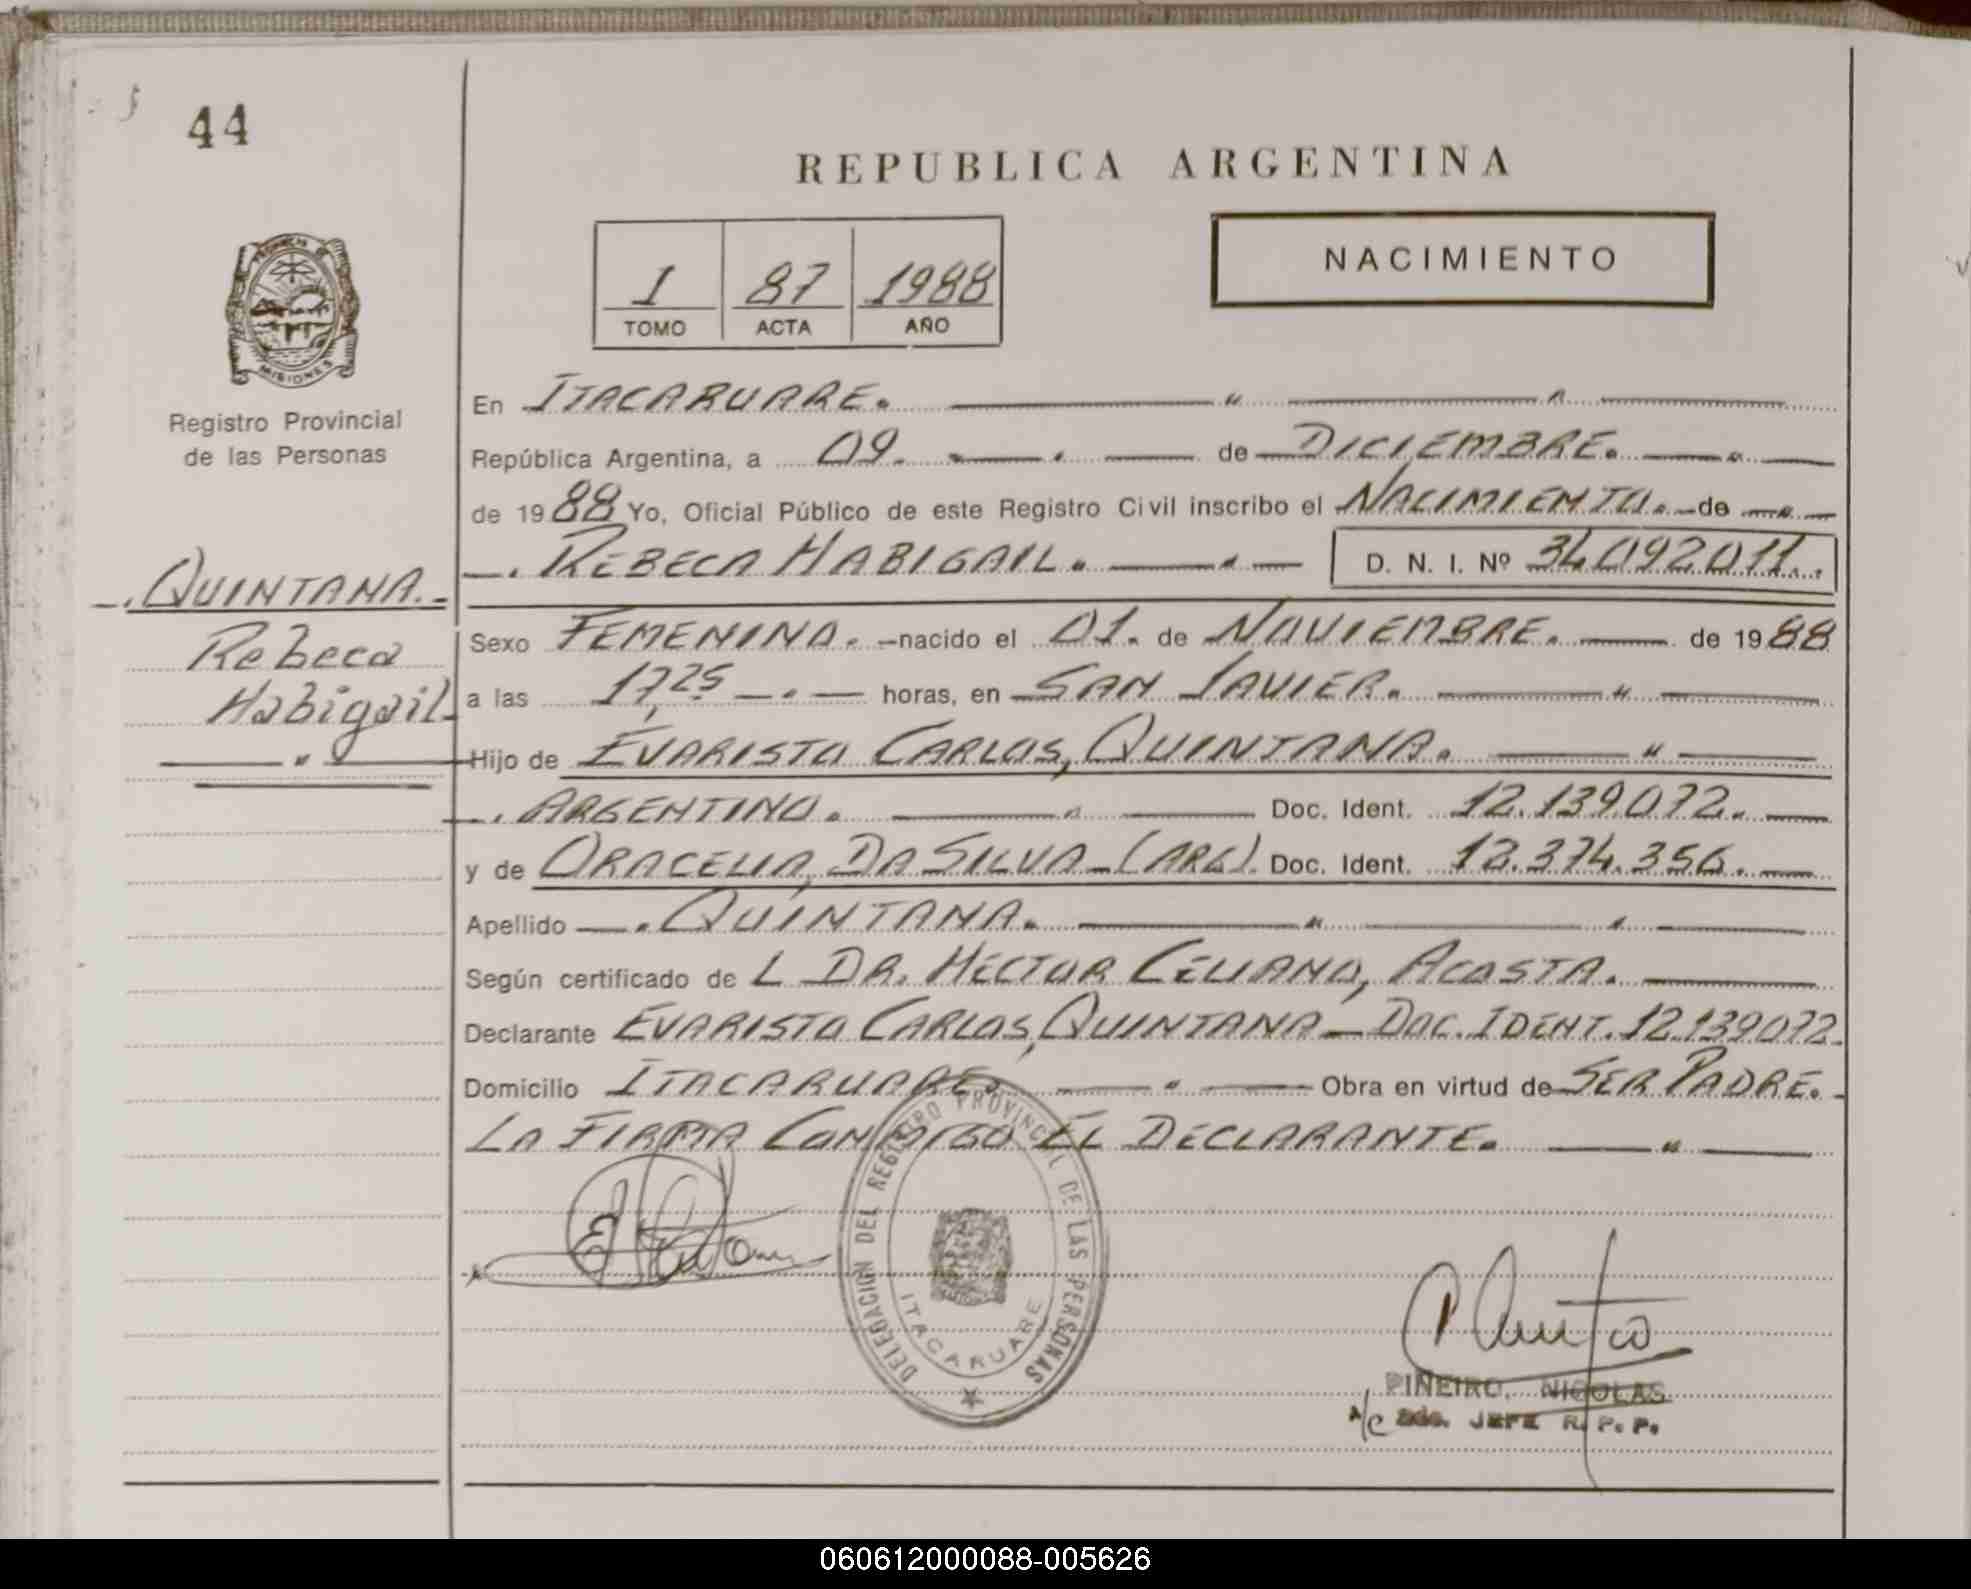 44
REPUBLICA ARGENTINA
NACIMIENTO
1 87 1988
TOMO ACTA AÑO
PROVINCIA DE
MISIONES
Registro Provincial
de las Personas
QUINTANA.
Rebeca
Habigail
En ITACARUARE.
República Argentina, a 09. de DICIEMBRE.
de 1988 Yo, Oficial Público de este Registro Civil inscribo el NACIMIENTO. de
REBECA HABIGAIL. D. N. I. Nº 34092011.
Sexo FEMENINO. nacido el 01. de NOVIEMBRE. de 1988
a las 17,25 horas, en SAN JAVIER.
Hijo de EVARISTO CARLOS, QUINTANA.
ARGENTINO. Doc. Ident. 12.139.072.
y de ORACELIA, DA SILVA - (ARG). Doc. Ident. 12.374.356.
Apellido QUINTANA.
Según certificado de L DR. HECTOR CELIANO, ACOSTA.
Declarante EVARISTO CARLOS, QUINTANA - DOC. IDENT. 12.139.072.
Domicilio ITACARUARE. Obra en virtud de SER PADRE.
LA FIRMA CONMIGO EL DECLARANTE.
DELEGACION DEL REGISTRO PROVINCIAL DE LAS PERSONAS
ITACARUARE
PIÑEIRO, NICOLAS
A/C JEFE R. P. P.
060612000088-005626